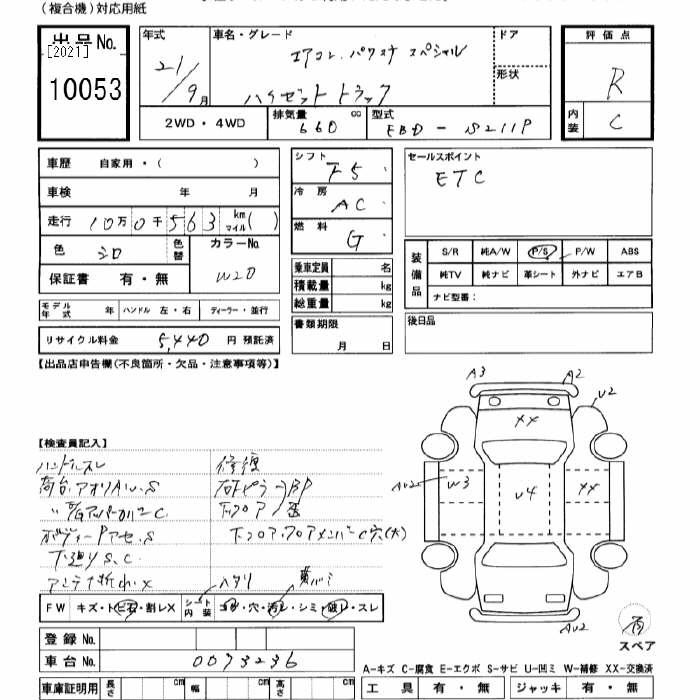 (複合機)対応用紙
出品No.
[2021]
10053
年式
21/9月
車名・グレード
エアコン、パワステ スペシャル
ハイゼットトラック
ドア
形状
評価点
R
内装
C
2WD・4WD
排気量
660
cc
型式
EBD-S211P
車歴 自家用・( )
車検 年 月
走行 10万0千563 km マイル( )
色 シロ
色替
カラーNo.
W20
保証書 有・無
モデル年式 年 ハンドル 左・右 ディーラー・並行
リサイクル料金 5,440 円 預託済
シフト
F5
冷房
AC
燃料
G
乗車定員 名
積載量 kg
総重量 kg
書類期限
月 日
セールスポイント
ETC
装備品
S/R 純A/W P/S P/W ABS
純TV 純ナビ 革シート 外ナビ エアB
ナビ型番:
後日品
【出品店申告欄(不良箇所・欠品・注意事項等)】
【検査員記入】
ハンドルスレ
荷台、アオリAW、S
ボディー下回りS、C
アンテナ折れ、X
修復
下フロア、フロアメンバーC穴(大)
A3
A2
U2
XX
AU2
W3
U4
XX
AU2
有
スペア
FW キズ・トビ石・割レX
シート内装
コゲ・穴・汚レ・シミ・破レ・スレ
ヘタリ
登録No.
車台No. 0073236
車庫証明用 長さ cm 幅 cm 高さ cm
A-キズ C-腐食 E-エクボ S-サビ U-凹ミ W-補修 XX-交換済
工具 有・無 ジャッキ 有・無